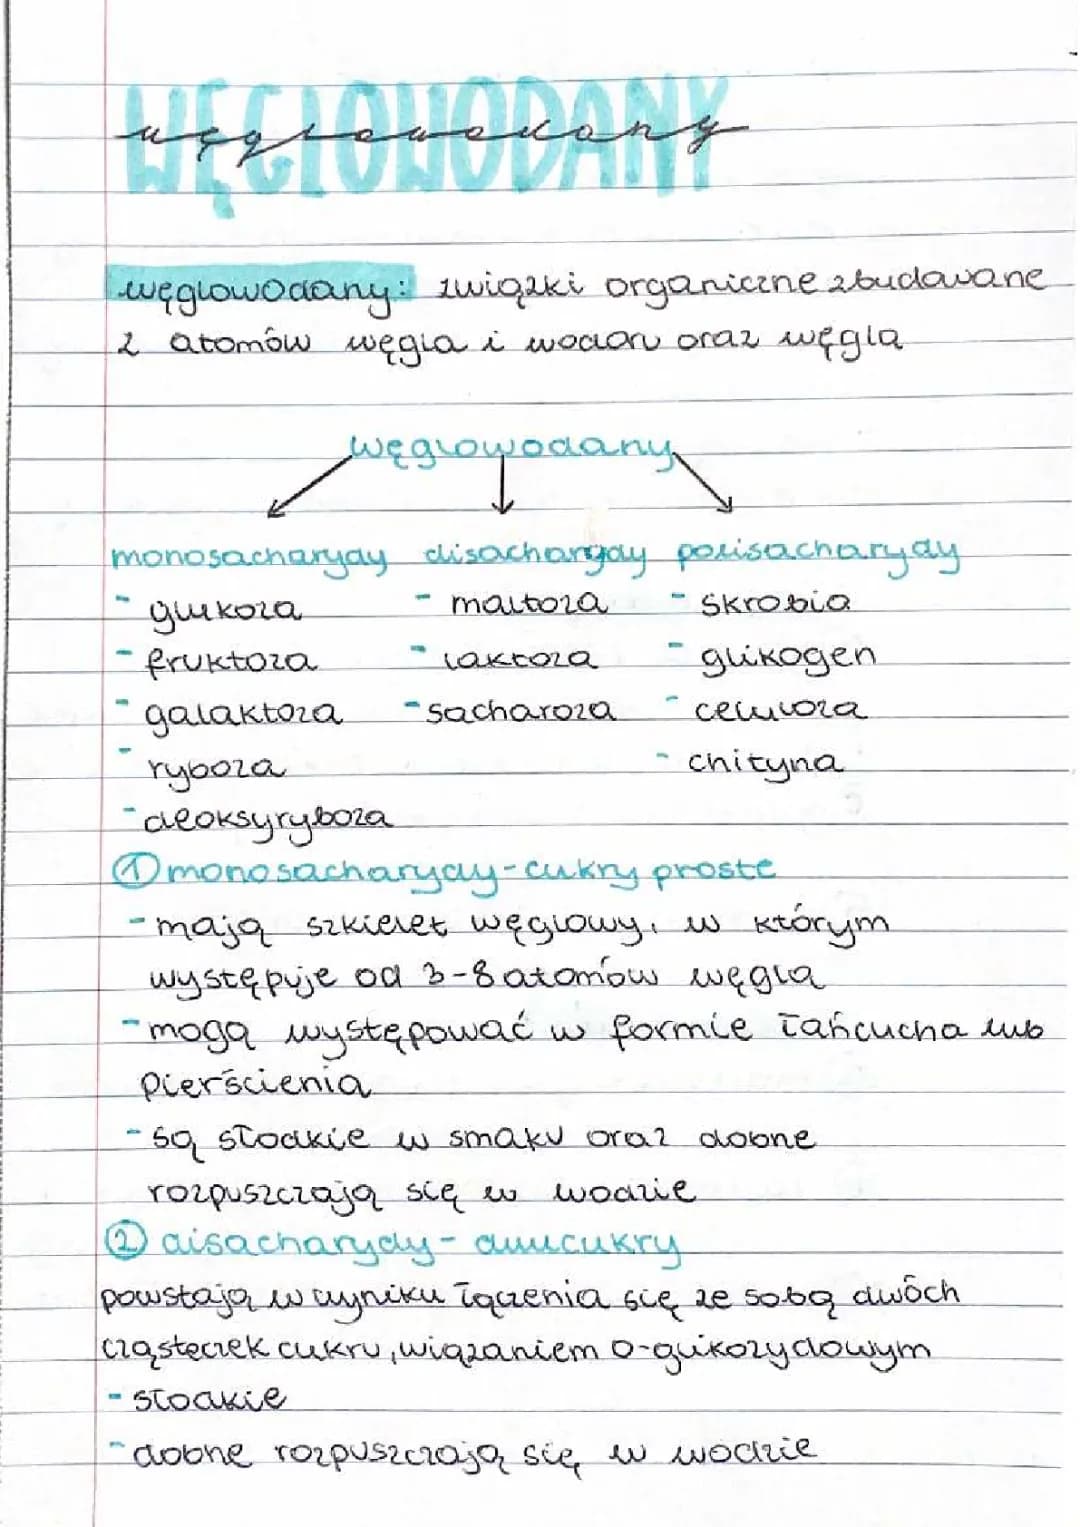 WĘGLOWODANY
węglowodany
węglowodany: związki organiczne zbudowane
z atomów węgla i wodoru oraz węgla
węglowodany
monosacharydy disacharydy polisacharydy
- glukoza - maltoza - skrobia
- fruktoza - laktoza - glikogen
- galaktoza - sacharoza - celuloza
- ryboza - chityna
- deoksyryboza
① monosacharydy - cukry proste
- mają szkielet węglowy, w którym
występuje od 3-8 atomów węgla
- mogą występować w formie łańcucha lub
pierścienia
- są słodkie w smaku oraz dobne
rozpuszczają się w wodzie
② disacharydy - dwucukry
powstają w wyniku łączenia się ze sobą dwóch
cząsteczek cukru, wiązaniem o-glikozydowym
- słodkie
- dobne rozpuszczają się w wodzie